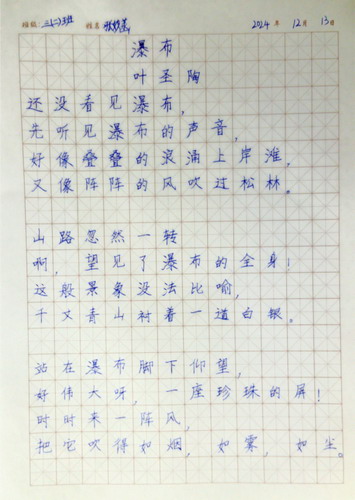 班级：三(2)班 姓名： 2024年 12月 13日
瀑布
叶圣陶
还没看见瀑布，
先听见瀑布的声音，
好像叠叠的浪涌上岸滩，
又像阵阵的风吹过松林。
山路忽然一转
啊，望见了瀑布的全身！
这般景象没法比喻，
千丈青山衬着一道白银。
站在瀑布脚下仰望，
好伟大呀，一座珍珠的屏！
时时来一阵风，
把它吹得如烟，如雾，如尘。